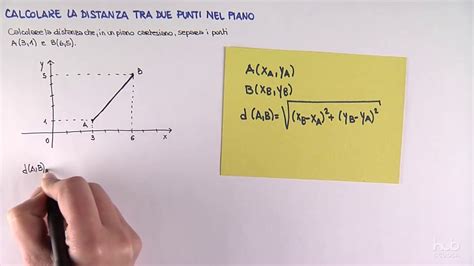 CALCOLARE LA DISTANZA TRA DUE PUNTI NEL PIANO
Calcolare la distanza che, in un piano cartesiano, separa i punti
A(3,1) e B(6,5).
y
5
B
1
A
0
3
6
x
d(A,B)=
A(xA,yA)
B(xB,yB)
d(A,B)=√(xB-xA)²+(yB-yA)²
hub